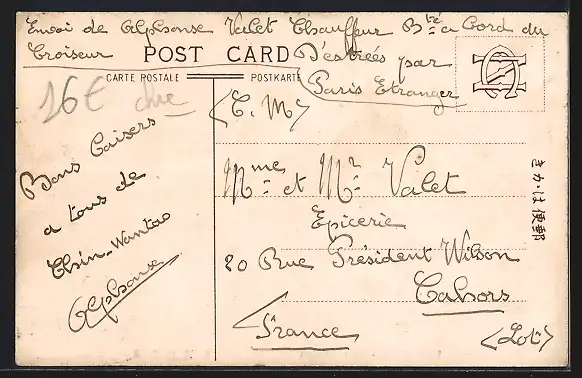 Envoi de Alphonse Valet Chauffeur Bté a bord du
Croiseur D'estrées par
Paris Etranger
POST CARD
CARTE POSTALE POSTKARTE
16€ chne
(T. M)
Bons baisers
a tous de
Chin-Wantao
Alphonse
Mme et Mr Valet
Epicerie
20 Rue Président Wilson
Cahors
(Lot)
France
きかは便郵